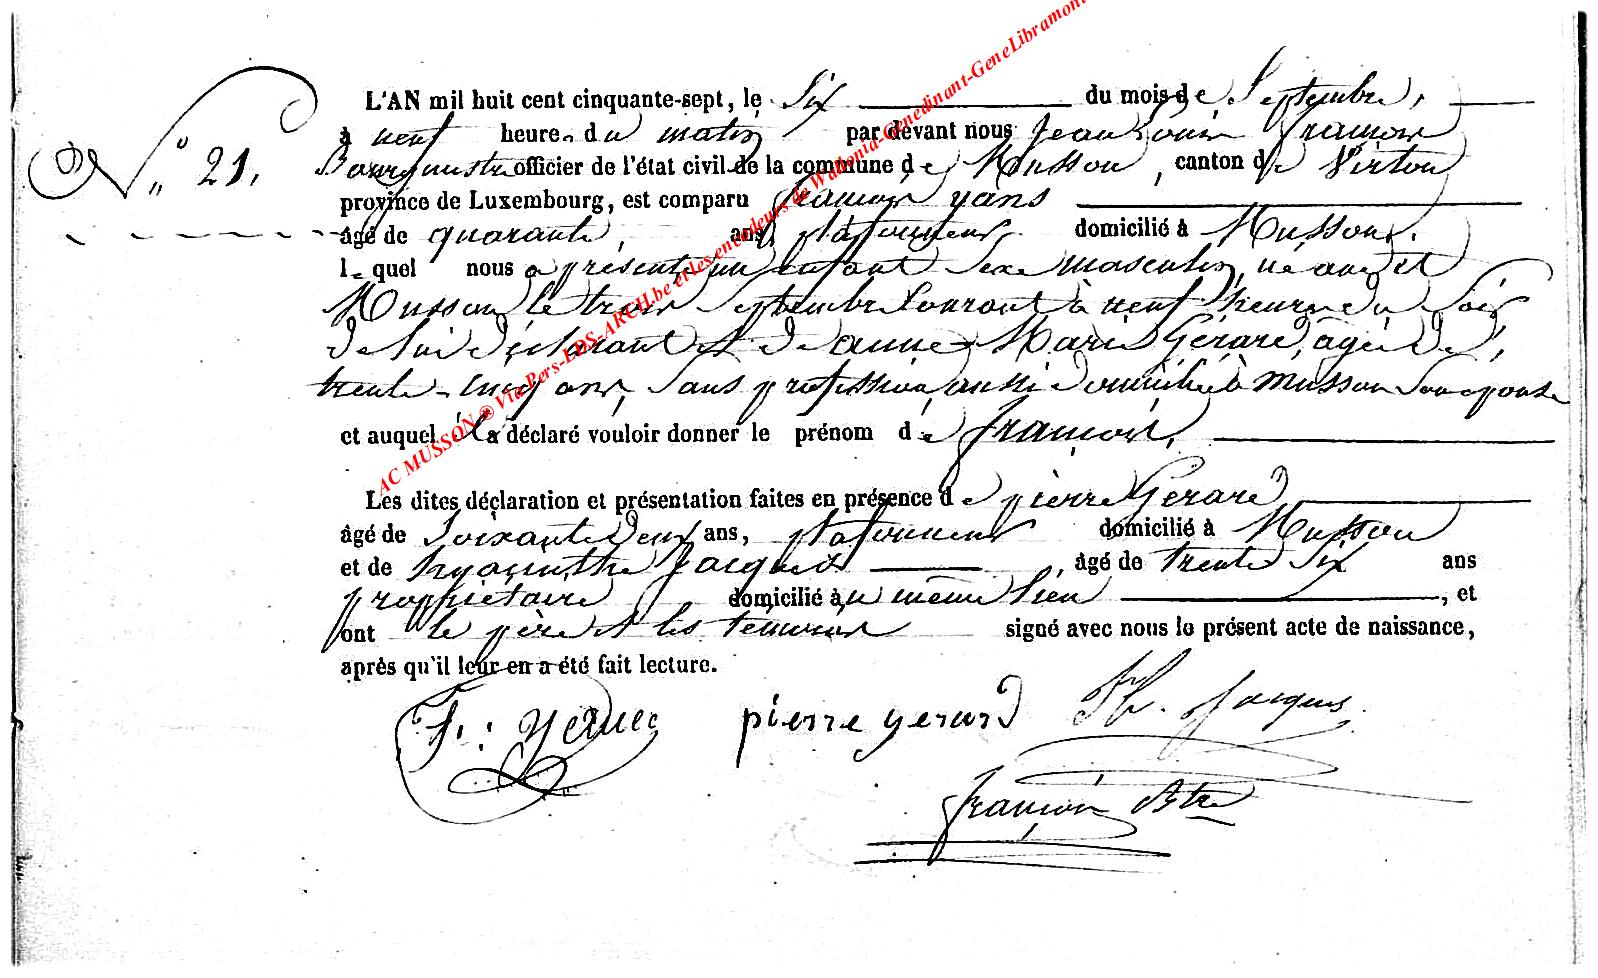 N° 21.
L'AN mil huit cent cinquante-sept, le Six du mois de Septembre,
à neuf heures du matin par devant nous Jean Louis François
Bourgmestre officier de l'état civil de la commune de Musson, canton de Virton
province de Luxembourg, est comparu François yans
âgé de quarante, ans, plafonneur domicilié à Musson,
lequel nous a présenté un enfant Sexe masculin, né au
Musson le trois Septembre Courant à neuf heures du Soir
de lui déclarant et de anne Marie Gérard, agée de,
trente-cinq ans, Sans profession, aussi domiciliée à Musson Son épouse
et auquel il a déclaré vouloir donner le prénom de François,
Les dites déclaration et présentation faites en présence de pierre Gérard
âgé de Soixante deux ans, plafonneur domicilié à Musson
et de hyacinthe Jacques, âgé de trente Six ans
propriétaire domicilié au même lieu, et
ont le père et les témoins signé avec nous le présent acte de naissance,
après qu'il leur en a été fait lecture.
pierre gerard
Jacques
François Btre
AC MUSSON ® Via Pers-LDS-ARCH.be et les encodeurs de Wallonia-Genedinant-GeneLibramont